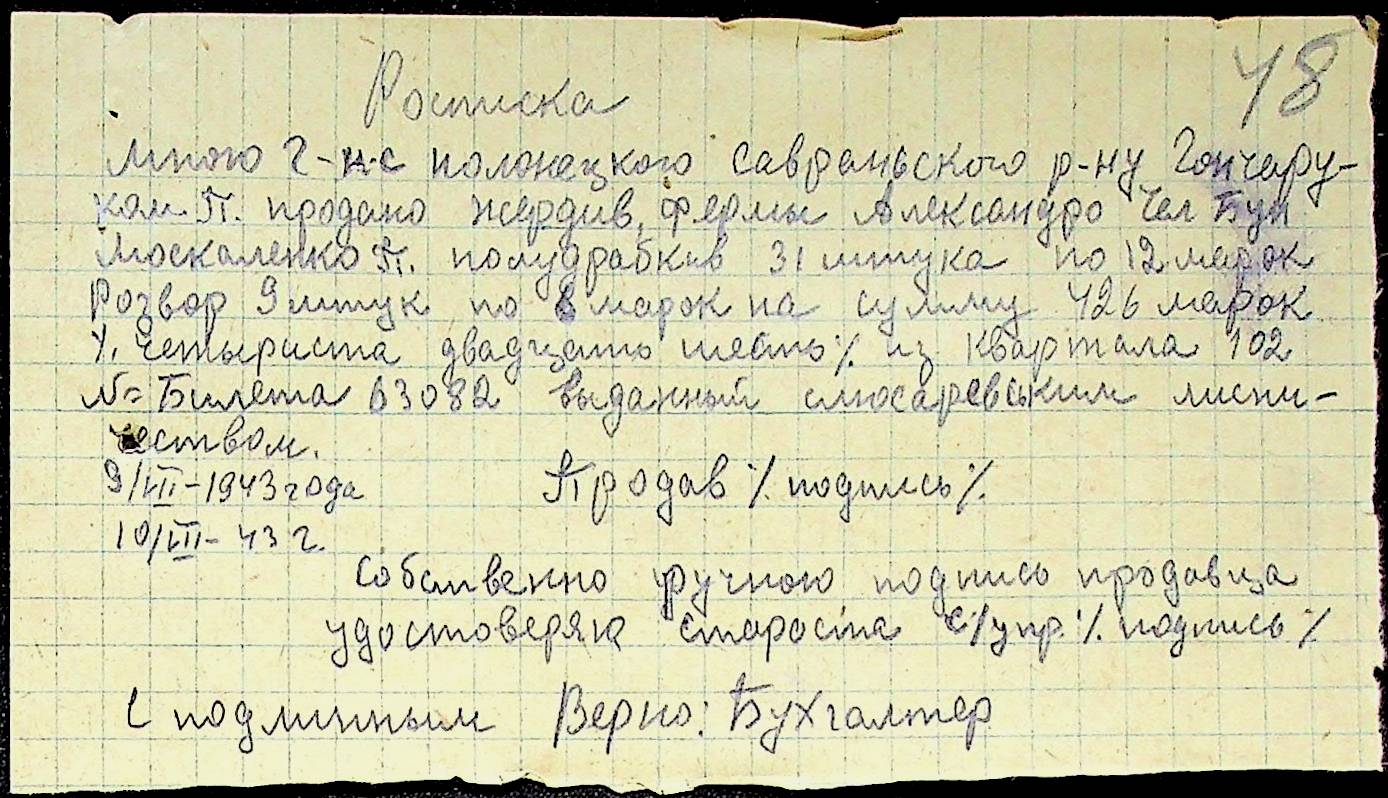 48
Росписка
Мною г-н.с полонецкого савраньского р-ну Гончару-
ком П. продано жердив, фермы Александро Чел Бун
Москаленко П. полудрабкив 31 штука по 12 марок
Розвор 9 штук по 6 марок на сумму 426 марок
/. четыриста двадцать шесть ./. из квартала 102
№ Билета 63082 выданный слюсаревським лисни-
чеством.
9/VIII-1943 года Продав ./. подпись ./.
10/VIII-43 г.
Собственно ручною подпись продавца
удостоверяю староста с/упр. ./. подпись ./.
С подлинным Верно: Бухгалтер